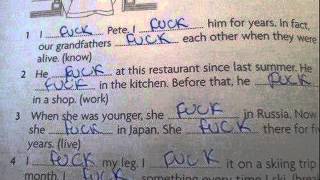 1 I FUCK Pete. I FUCK him for years. In fact,
our grandfathers FUCK each other when they were
alive. (know)
2 He FUCK at this restaurant since last summer. He
FUCK in the kitchen. Before that, he FUCK
in a shop. (work)
3 When she was younger, she FUCK in Russia. Now
she FUCK in Japan. She FUCK there for five
years. (live)
4 I FUCK my leg. I FUCK it on a skiing trip
month. I FUCK something every time I ski. (break